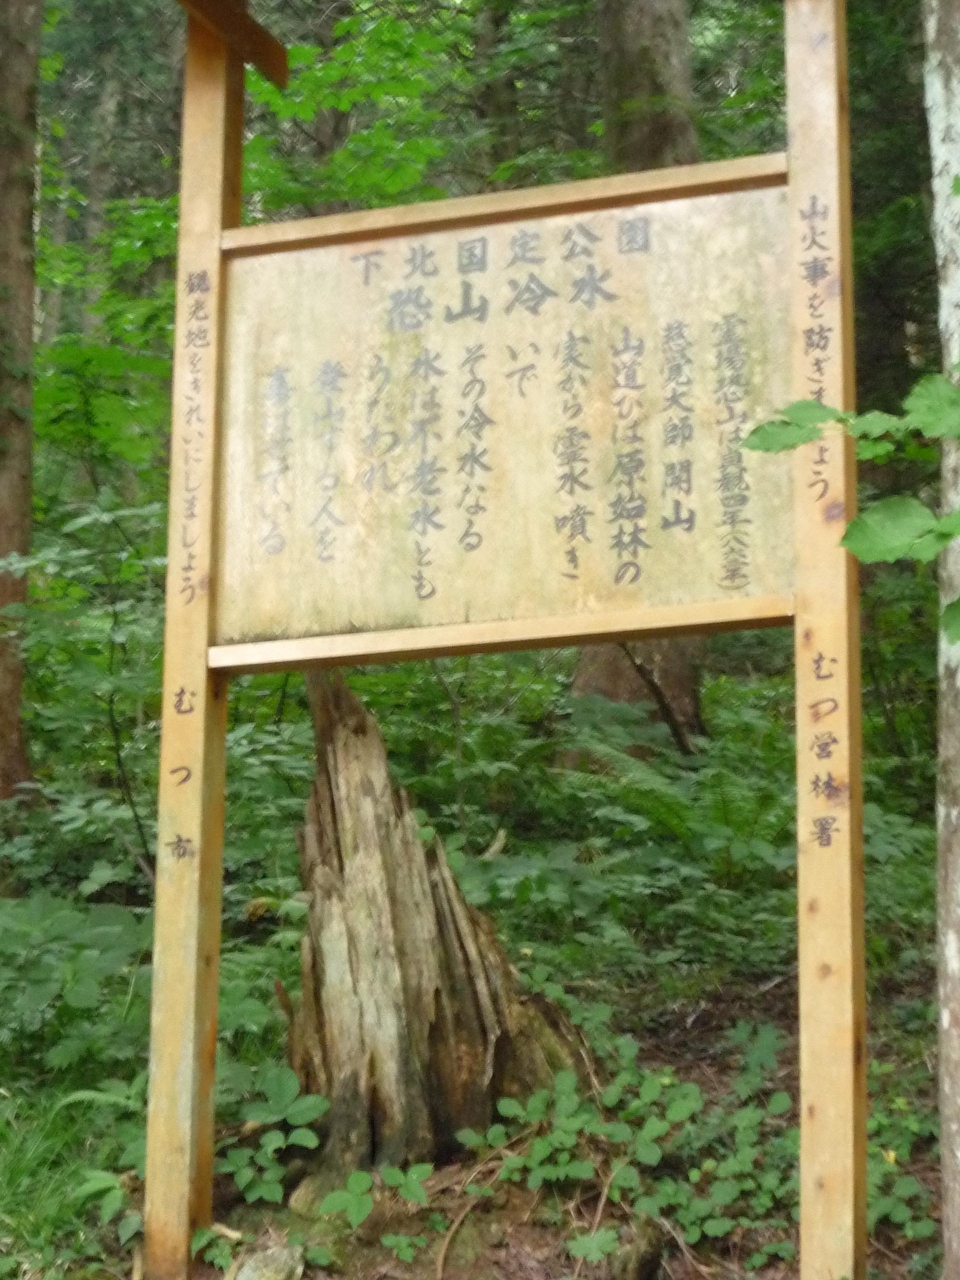 下北国定公園
恐山冷水
霊場恐山は貞観四年(八六二年)
慈覚大師 開山
山道ひば原始林の
奥から霊水噴き
いで
その冷水なる
水は不老水とも
うたわれ
登山する人を
喜ばせている
山火事を防ぎましょう むつ営林署
観光地をきれいにしましょう むつ市